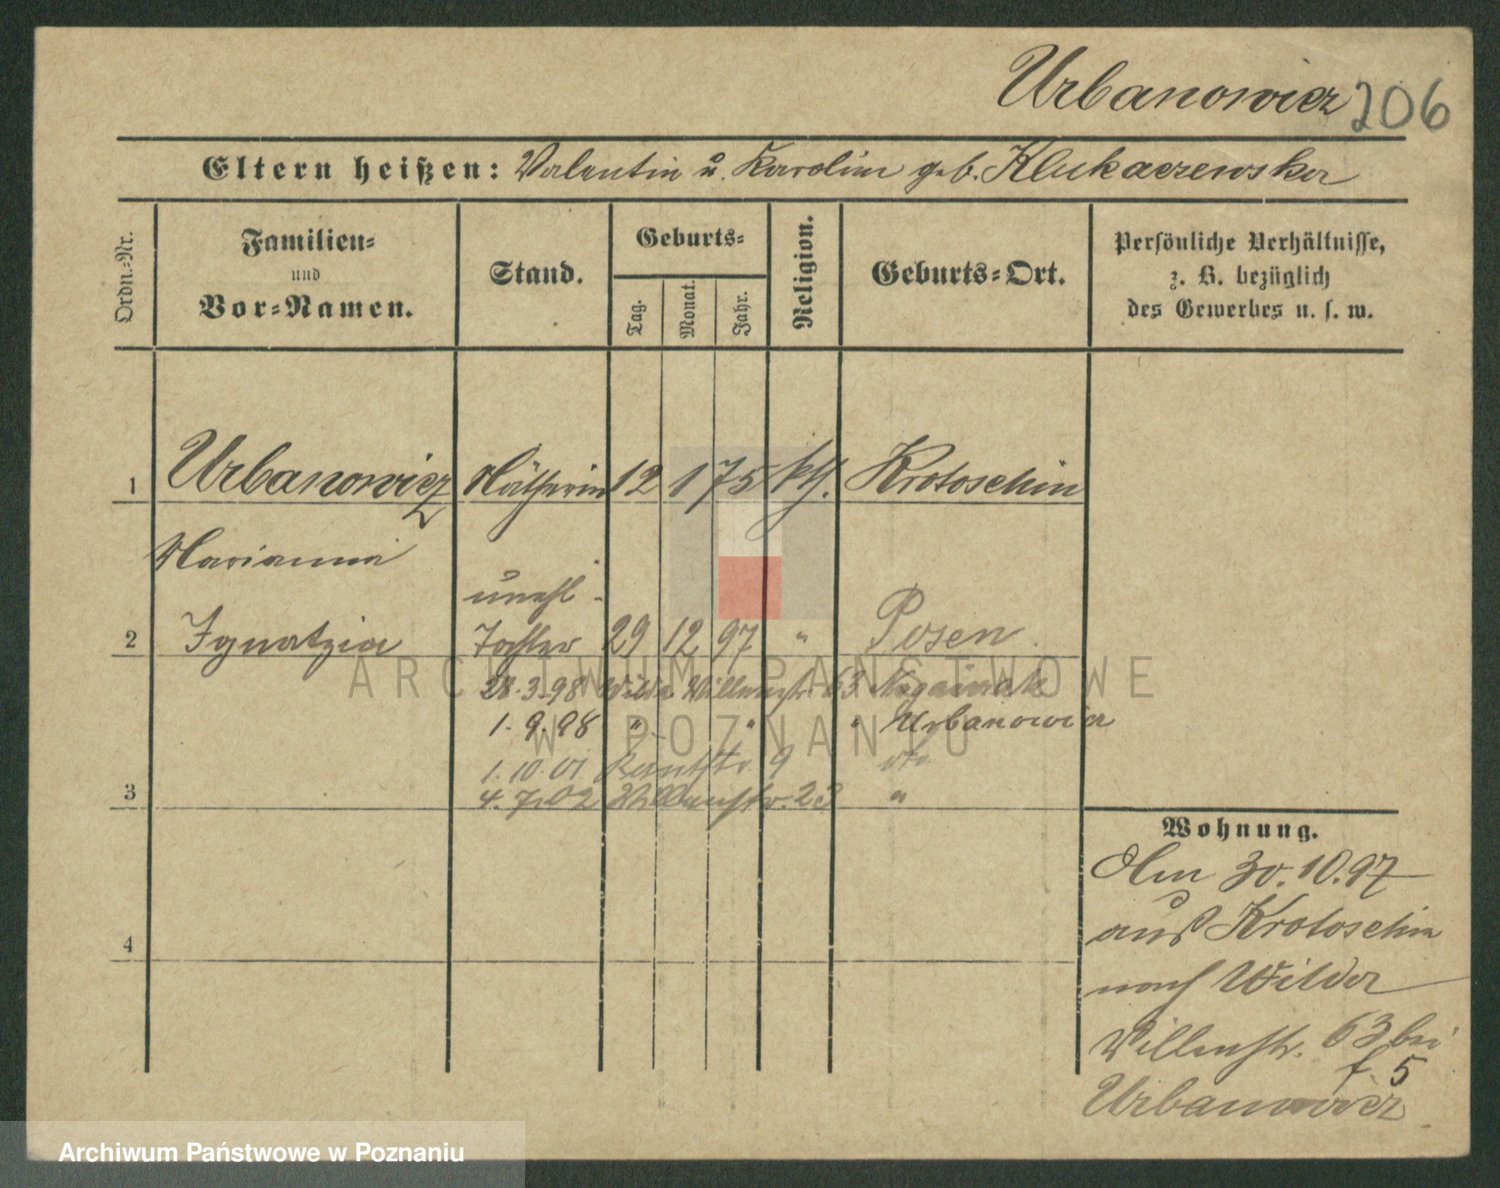 Urbanowicz 206
Eltern heißen: Valentin u. Karolin geb. Klukaczewska
Ordn.-Nr.
Familien-
und
Vor-Namen.
Stand.
Geburts-
Tag.
Monat.
Jahr.
Religion.
Geburts-Ort.
Persönliche Verhältnisse,
z. B. bezüglich
des Gewerbes u. s. w.
1 Urbanowicz Nätherin 12 1 75 kth. Krotoschin
Marianna
unehl.
2 Ignatzia Tochter 29 12 97 " Posen
28.3.98 Wilda Villenstr. 63
1.9.98 " " " Urbanowicz
1.10.01 9 dto
3 4.7.02 Villenstr. 23 "
4
Wohnung.
Am 30.10.97
aus Krotoschin
nach Wilda
Villenstr. 63 bei
f. 5
Urbanowicz
ARCHIWUM PAŃSTWOWE
W POZNANIU
Archiwum Państwowe w Poznaniu